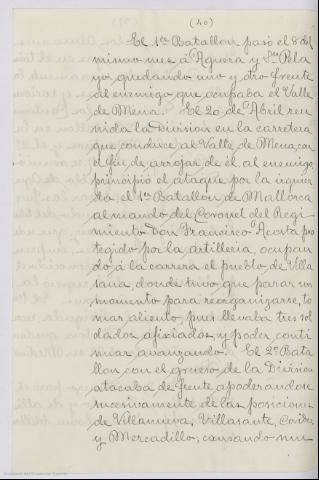 (40)
El 1er Batallon pasó el 8 del
mismo mes á Agüera y Sn Pela
yo, quedando uno y otro frente
al enemigo que ocupaba el Valle
de Mena. El 20 de Abril reu
nida la Division en la carretera
que conduce al Valle de Mena, con
el fin de arrojar de él al enemigo,
principió el ataque por la izquier
da el 1er Batallon de Mallorca
al mando del Coronel del Regi
miento Don Francisco Acosta pro
tegido por la artilleria, ocupan
do á la carrera el pueblo de Villa
sana donde tuvo que parar un
momento para reorganizarse, to
mar aliento, pues llevaba tres sol
dados afixiados, y poder conti
nuar avanzando. El 2º Bata
llon con el grueso de la Division
atacaba de frente apoderandose
sucesivamente de las posiciones
de Villanueva, Villasante,
y Mercadillo, causando